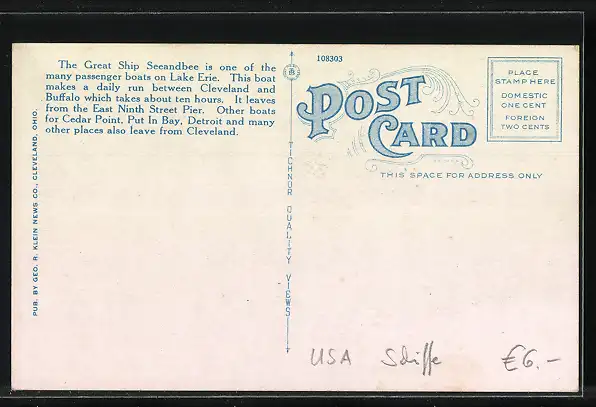 The Great Ship Seeandbee is one of the
many passenger boats on Lake Erie. This boat
makes a daily run between Cleveland and
Buffalo which takes about ten hours. It leaves
from the East Ninth Street Pier. Other boats
for Cedar Point, Put In Bay, Detroit and many
other places also leave from Cleveland.
PUB. BY GEO. R. KLEIN NEWS CO., CLEVELAND, OHIO.
TICHNOR QUALITY VIEWS
108303
POST
CARD
PLACE
STAMP HERE
DOMESTIC
ONE CENT
FOREIGN
TWO CENTS
THIS SPACE FOR ADDRESS ONLY
USA Schiffe €6.-